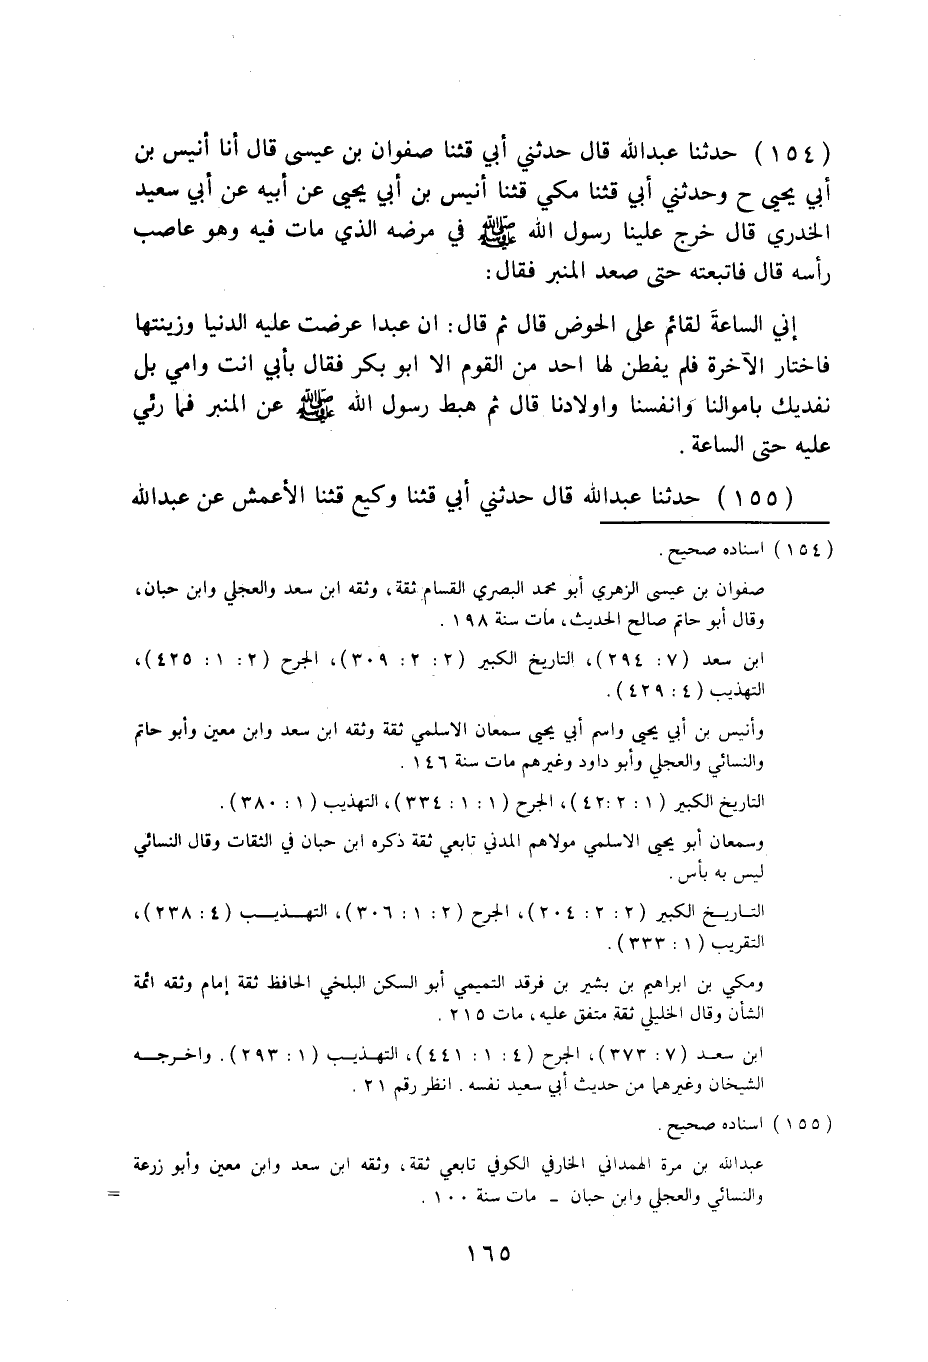 (١٥٤) حدثنا عبدالله قال حدثني أبي قثنا صفوان بن عيسى قال أنا أنيس بن
أبي يحيى ح وحدثني أبي قثنا مكي قثنا أنيس بن أبي يحيى عن أبيه عن أبي سعيد
الخدري قال خرج علينا رسول الله ﷺ في مرضه الذي مات فيه وهو عاصب
رأسه قال فاتبعته حتى صعد المنبر فقال:
إني الساعةَ لقائم على الحوض قال ثم قال: ان عبدا عرضت عليه الدنيا وزينتها
فاختار الآخرة فلم يفطن لها احد من القوم الا ابو بكر فقال بأبي انت وامي بل
نفديك باموالنا وانفسنا واولادنا قال ثم هبط رسول الله ﷺ عن المنبر فما رئي
عليه حتى الساعة.
(١٥٥) حدثنا عبدالله قال حدثني أبي قثنا وكيع قثنا الأعمش عن عبدالله
(١٥٤) اسناده صحيح.
صفوان بن عيسى الزهري أبو محمد البصري القسام ثقة، وثقه ابن سعد والعجلي وابن حبان،
وقال أبو حاتم صالح الحديث، مات سنة ١٩٨.
ابن سعد (٧: ٢٩٤)، التاريخ الكبير (٢: ٢: ٣٠٩)، الجرح (٢: ١: ٤٢٥)،
التهذيب (٤: ٤٢٩).
وأنيس بن أبي يحيى واسم أبي يحيى سمعان الاسلمي ثقة وثقه ابن سعد وابن معين وأبو حاتم
والنسائي والعجلي وأبو داود وغيرهم مات سنة ١٤٦.
التاريخ الكبير (١: ٢: ٤٢)، الجرح (١: ١: ٣٣٤)، التهذيب (١: ٣٨٠).
وسمعان أبو يحيى الاسلمي مولاهم المدني تابعي ثقة ذكره ابن حبان في الثقات وقال النسائي
ليس به بأس.
التاريخ الكبير (٢: ٢: ٢٠٤)، الجرح (٢: ١: ٣٠٦)، التهذيب (٤: ٢٣٨)،
التقريب (١: ٣٣٣).
ومكي بن ابراهيم بن بشير بن فرقد التميمي أبو السكن البلخي الحافظ ثقة إمام وثقه ائمة
الشأن وقال الخليلي ثقة متفق عليه، مات ٢١٥.
ابن سعد (٧: ٣٧٣)، الجرح (٤: ١: ٤٤١)، التهذيب (١: ٢٩٣). واخرجه
الشيخان وغيرهما من حديث أبي سعيد نفسه. انظر رقم ٢١.
(١٥٥) اسناده صحيح.
عبدالله بن مرة الهمداني الخارفي الكوفي تابعي ثقة، وثقه ابن سعد وابن معين وأبو زرعة
والنسائي والعجلي وابن حبان - مات سنة ١٠٠. =
١٦٥